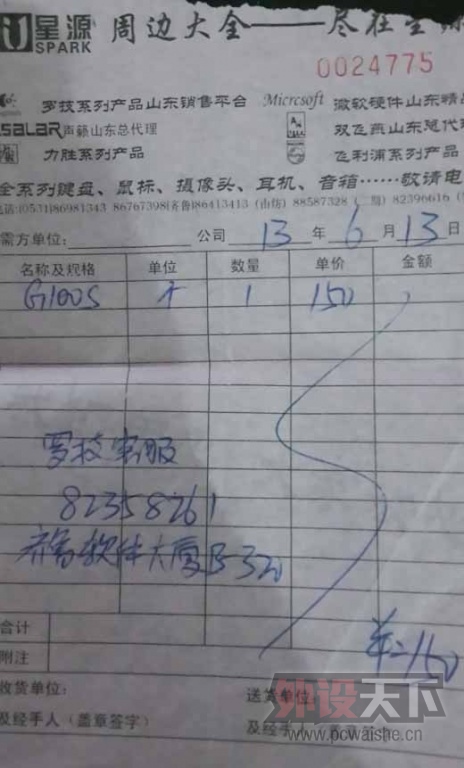 星源 周边大全——尽在星
SPARK
0024775
罗技系列产品山东销售平台 Micrcsoft 微软硬件山东精品
SALAR声籁山东总代理 双飞燕山东总代理
力胜系列产品 飞利浦系列产品
全系列键盘、鼠标、摄像头、耳机、音箱……敬请电
电话:(0531)86981343 86767398(齐鲁)86413413 (山纺) 88587328 (二期) 82396616
需方单位: 公司 13 年 6 月 13 日
名称及规格 单位 数量 单价 金额
G100S 个 1 150
罗技客服
82358261
齐鲁软件大厦B-320
合计
附注 150
收货单位: 送货单位
及经手人（盖章签字） 及经手
外设天下
www.pcwaishe.cn